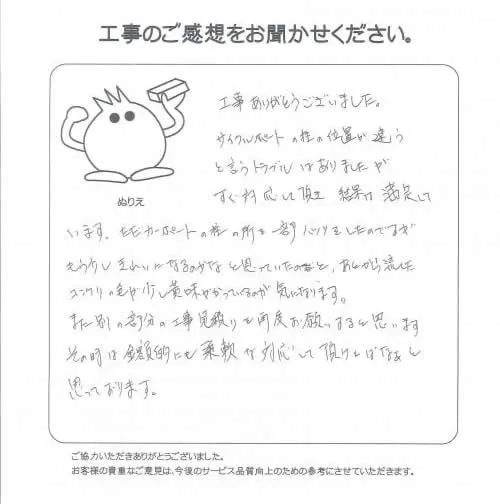 工事のご感想をお聞かせください。
工事ありがとうございました。
サイクルポートの柱の位置が違う
と言うトラブルはありましたが
すぐ対応して頂き 結果は満足して
ぬりえ
います。ただカーポートの柱の所を一部ハツリをしたのですが
もう少しきれいになるのかなと思っていたのと、あとから流した
コンクリの色が少し黄味がかっているのが気になります。
また別の部分の工事見積りを再度お願いすると思います
その時は金額的にも柔軟な対応して頂ければなぁと
思っております。
ご協力いただきありがとうございました。
お客様の貴重なご意見は、今後のサービス品質向上のための参考にさせていただきます。